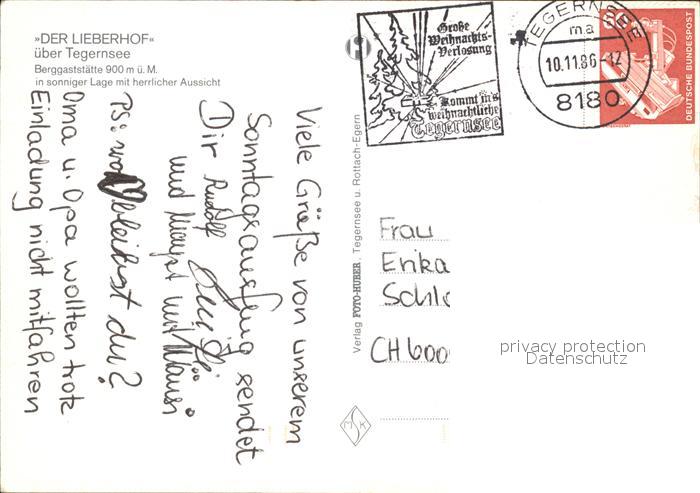 »DER LIEBERHOF«
über Tegernsee
Berggaststätte 900 m ü. M.
in sonniger Lage mit herrlicher Aussicht
Große
Weihnachts-
Verlosung
Kommt in's
weihnachtliche
Tegernsee
TEGERNSEE
ma
10.11.86-12
8180
80
DEUTSCHE BUNDESPOST
Viele Grüße von unserem
Sonntagsausflug sendet
Dir Rudolf
und
mit Mausi
PS: wo bleibst du?
Oma u. Opa wollten trotz
Einladung nicht mitfahren
Verlag FOTO-HUBER, Tegernsee u. Rottach-Egern
Frau
Erika
CH 600
MSK
privacy protection
Datenschutz